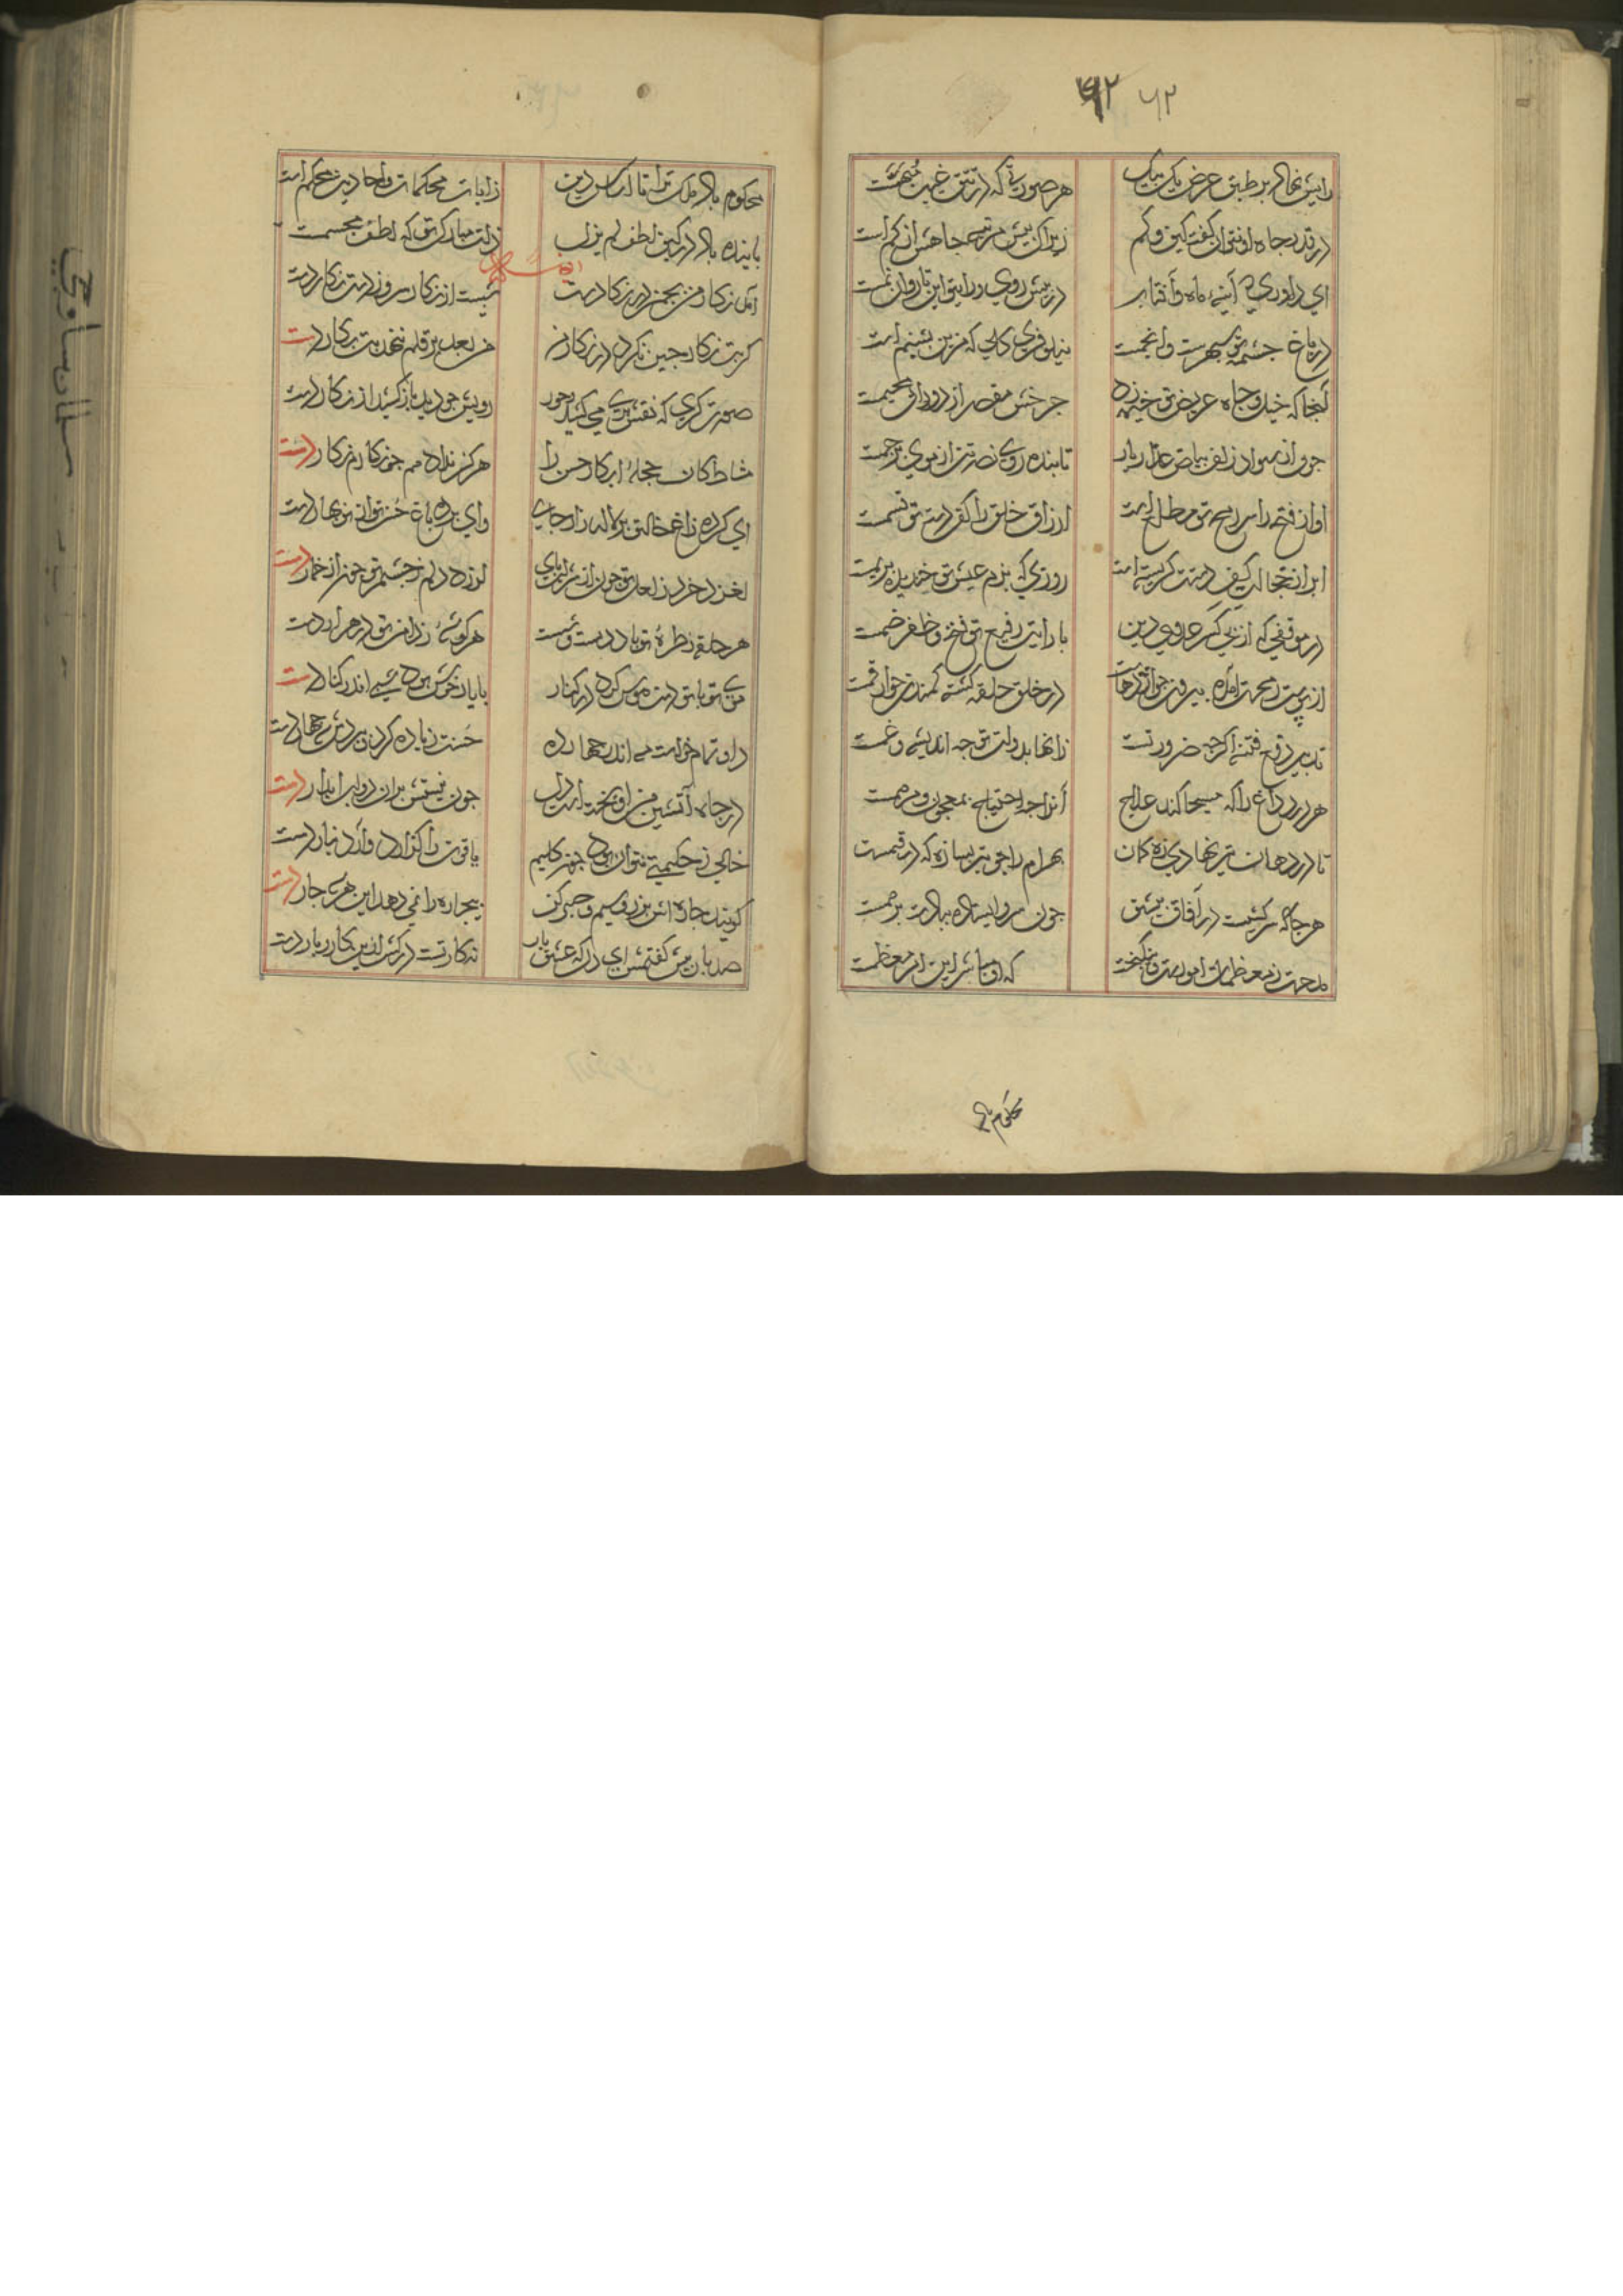 ۶۲ ۶۲
رایش نهاد بر طبق عرض یک بیک هر صورتی که در تتق غیب مبهمست
در قدر جاه او نتوان گفت کیف و کم زیرا که بیش مرتبه جاهش از کم است
ای داوری که آینه ماه و آفتاب در پیش روی و رایت این تار و آن نمست
در باغ حشمت تو سپهرست و انجمست نیلوفری که مزین بشبنم است
آنجا که خیل و جاه عریض تو خیمه زد چرخش مقصر از دورانی مخیمست
چون از سواد زلف بیاض عذار یار تابنده روی نصرتت از موی پرچمست
آواز فتح را سر رمح تو مطلع است ارزاق خلق را کف دست تو مقسمست
ابر از خجالت کف دستت گریسته است روزی که بزم عیش تو خندیده بر یمست
در موقفی که از پی کسر عدوی دین با رایت رفیع تو فتح و ظفر ضمست
از پوست رمحت آمده بیرون چو اژدهاست در خلق حلقه گشته کمندت چو ارقمست
تدبیر دفع فتنه اگرچه ضرورتست زانها بدولت تو چه اندیشه و غمست
هر درد و داغ را که مسیحا کند علاج آنرا چه احتیاج بمعجون و مرهمست
تا در دهان تیر نهادی زه کمان بهرام را چو تیر
هر جا که سرکشیست در آفاق پیش تو چون سرو ایستاده بیادت
مدحت ز معظمات امورست و نیکبخت که او مباشر این امر معظمست
محکوم باد
محکوم باد ملک ترا تا اساس دین ز آیات محکمات و احادیث محکم است
پاینده باد در کنف لطف لم یزل ذات مبارک تو که لطف مجسمست
آمد نگار من بچمن در نگار دست شست از نگار سرو ز دست نگار دست
گر بت نگار چین نگرد در نگار من من بعد بر قلم ننهد بت نگار دست
صورتگری که نقش پری می کشد بحور رویش چو دید باز کشید از نگار دست
مشاطگان حجله ابکار حسن را هرگز نداد هم چو نگارم نگار دست
ای کرده زاغ خالت بر لاله زار جای وای برده باغ حسن تو از نوبهار دست
لغزد خرد ز لعل تو چون از شراب پای لرزد دلم ز چشم تو چون از خمار دست
هر حلقه ز طره تو باد دست و شست هر گوشه ز دامن تو در هزار دست
موی تو با تو دست هوس کرد در کنار با یار خوش بود شبی اندر کنار دست
داو تمام خواست مه اندر چهارده حسنت زیاده کرد و ببردش چهار دست
در چاه آتشین من آویخته است دل چون نیستش بران دو لب آبدار دست
خالی ز حکمتی نتوان بود چون کلیم یاقوت را گذارد و آرد بنار دست
گویند چاره اش بزر و سیم و صبر کن بیچاره را نمی دهد این هر سه چار دست
صد بار بیش گفتمش ای دل که عشق یار نه کار تست درکش ازین کار و بار دست